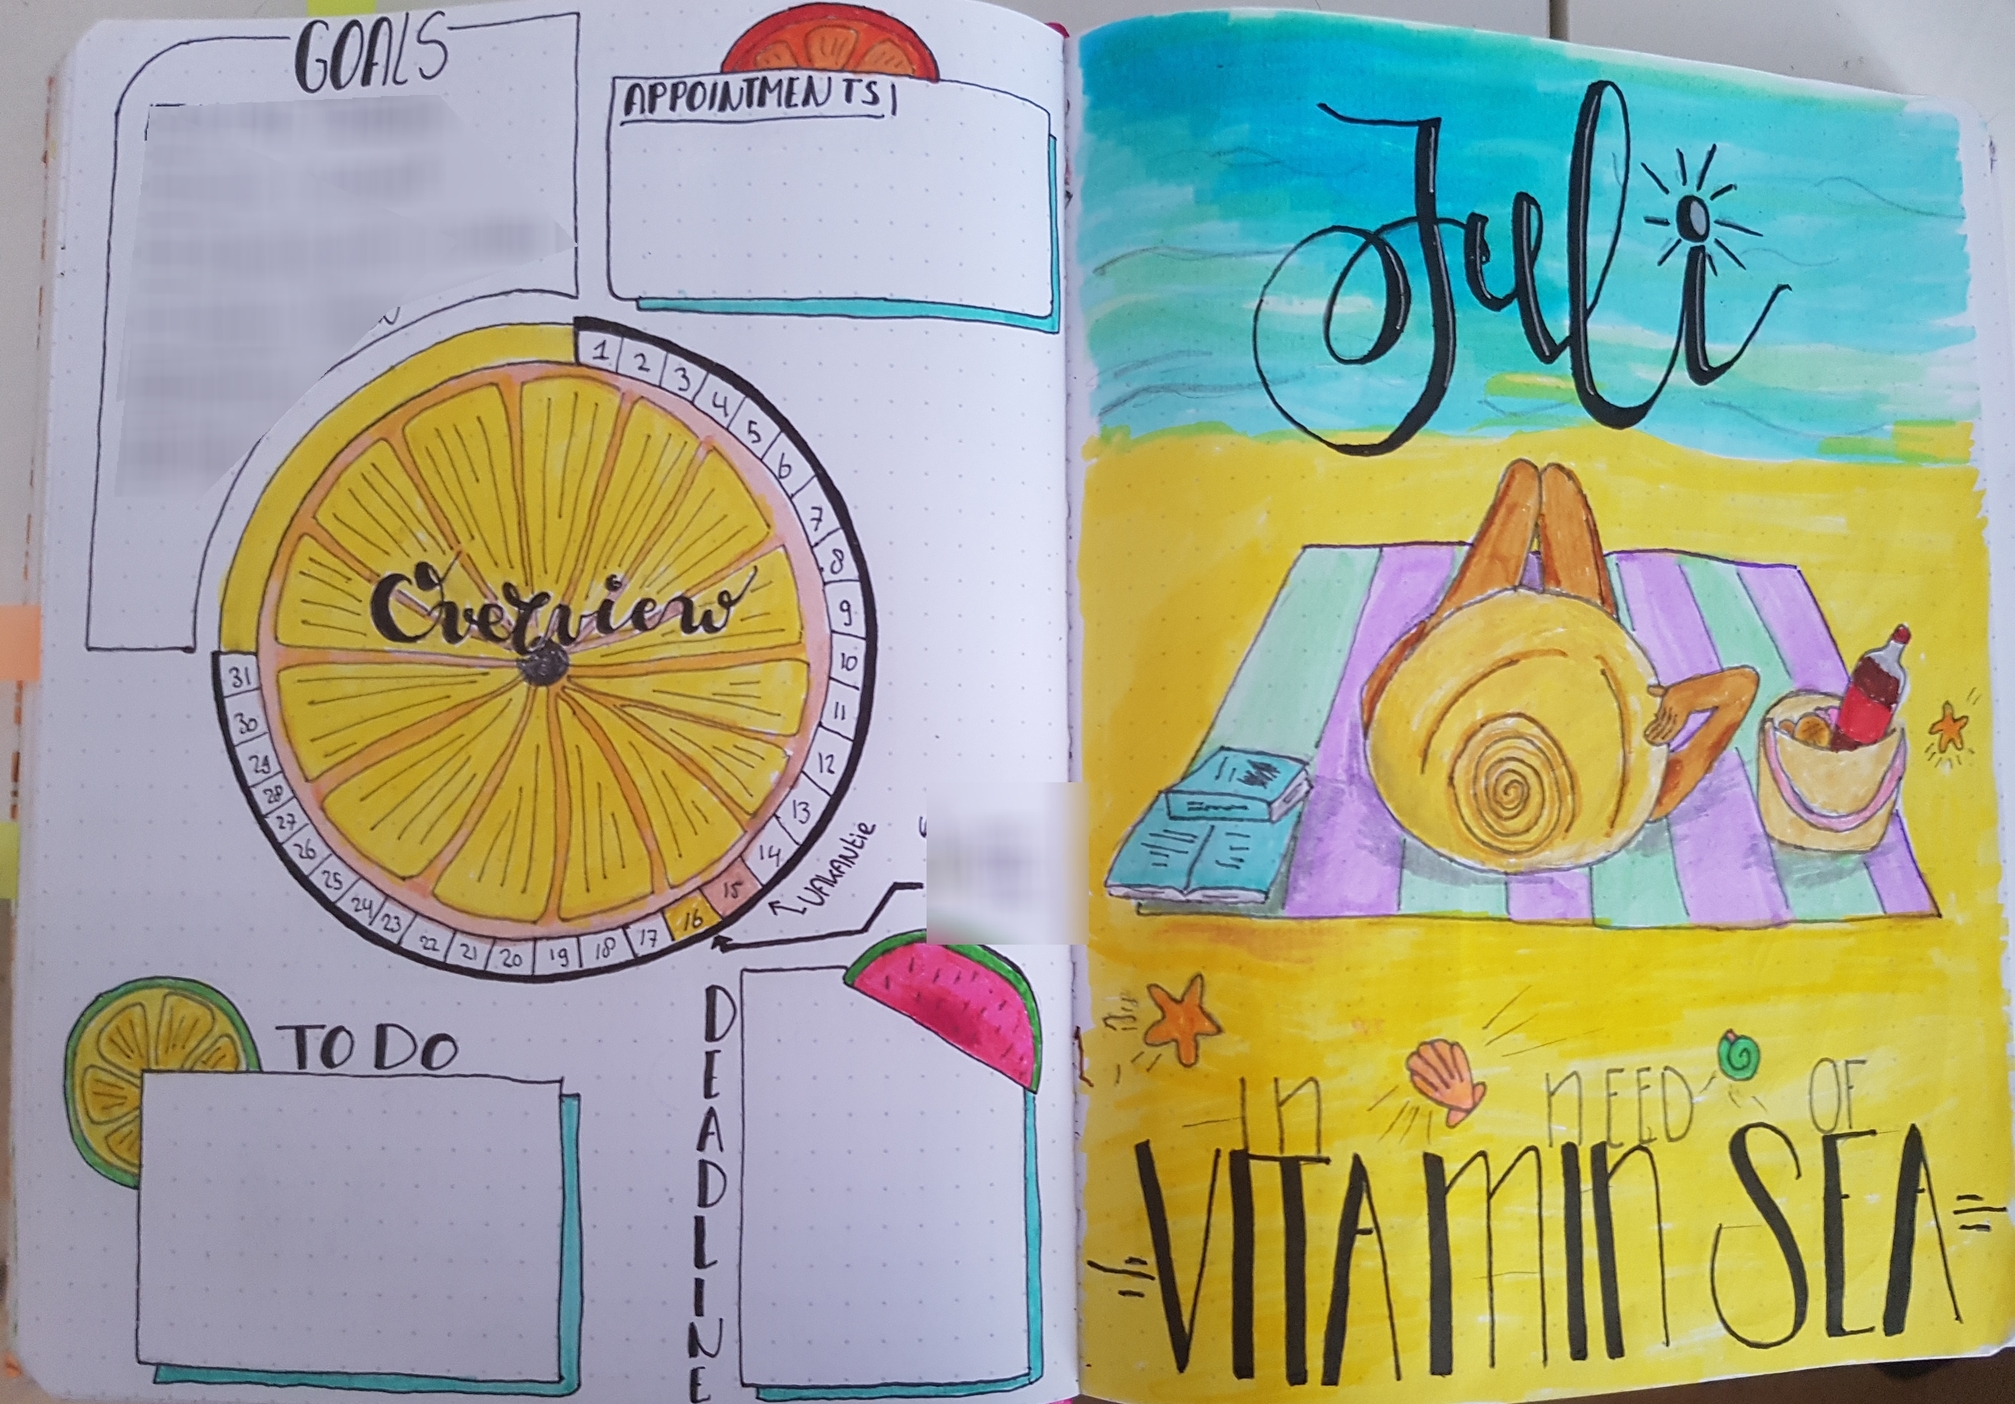 GOALS
APPOINTMENTS
1
2
3
4
5
6
7
8
9
10
11
12
13
14
15
16
17
18
19
20
21
22
23
24
25
26
27
28
29
30
31
Overview
VAKANtiE
TO DO
DEADLINE
Juli
In nEED OF
VITAmIn SEA